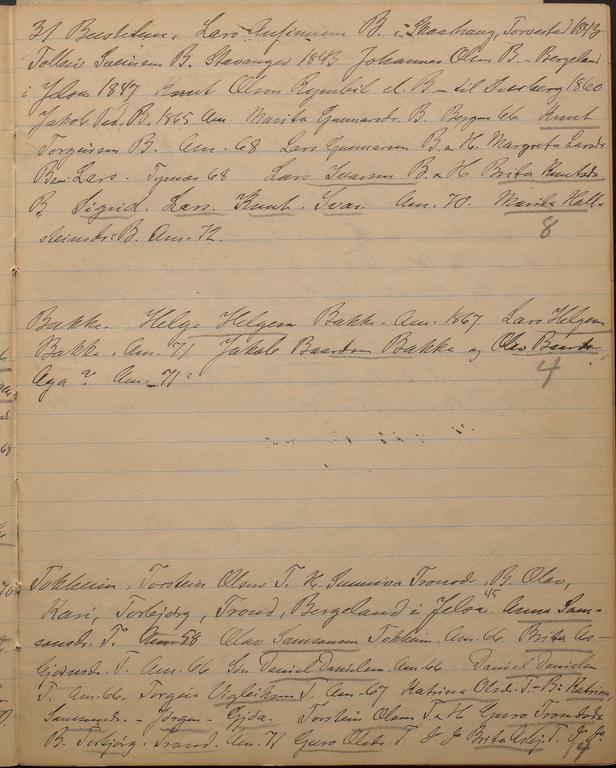 31 Bustetun. Lars Anfinnsen B. i Skaathaug, Torvestad 1843
Tolleiv Sveinsen B. Stavanger 1843 Johannes Olsen B. - Bergeland
i Jelsa 1847 Knut Olsen B. - til 1860
Jakob Ped. B. 1865 Am. Marita Gunnarsdr. B. Bergen 66 Knut
Torgeirsen B. Am. 68 Lars Gunnarsen B. & H. Margreta Larsdr
Barn: Lars. 68 Lars Ivarsen B. & H. Brita Knutsdr
B. Sigrid. Lars. Knut. Ivar. Am. 70. Marita Hall-
steinsdr. B. Am. 72.
8
Bakke. Helge Helgesen Bakke. Am. 1867. Lars Helgesen
Bakke. Am. 71 Jakob Baardsen Bakke og Olav Baardsn
Aga? Am. 71:
4
Tokheim. Torstein Olsen T. H. Sunniva Tronsdr. B. Olav,
Kari, Torbjørg, Trond, Bergeland i Jelsa 45 Anna Sam-
sonsdr. T. Am 58 Olav Samsonsen Tokheim Am. 66 Brita As-
gjerdsdr. T. Am. 66 Daniel Danielsen Am. 66 Daniel Danielsen
T. Am. 66. Torgeis Vigleiksen T. Am. 67 Katrina Olsdr. T. - B: Katrina,
- Jørgen - Gjøa. Torstein Olsen T. & H Guro Trondsdr
B. Torbjørg, Trond. Am. 71 Guro Olsdr. T. Brita T.
14